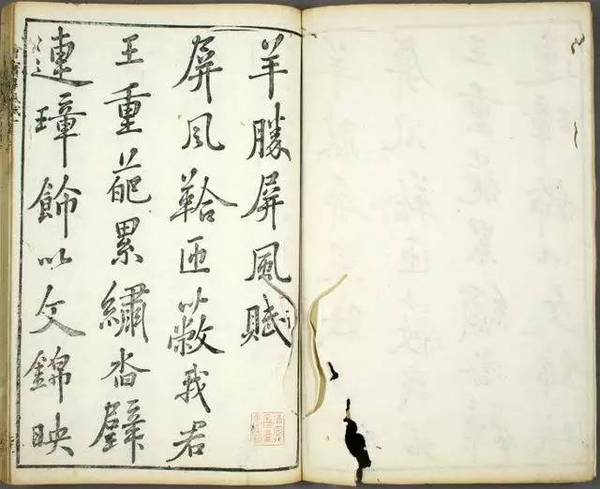 羊勝屏風賦
屏風鞈匝蔽我君
王重葩累繡沓璧
連璋飾以文錦映